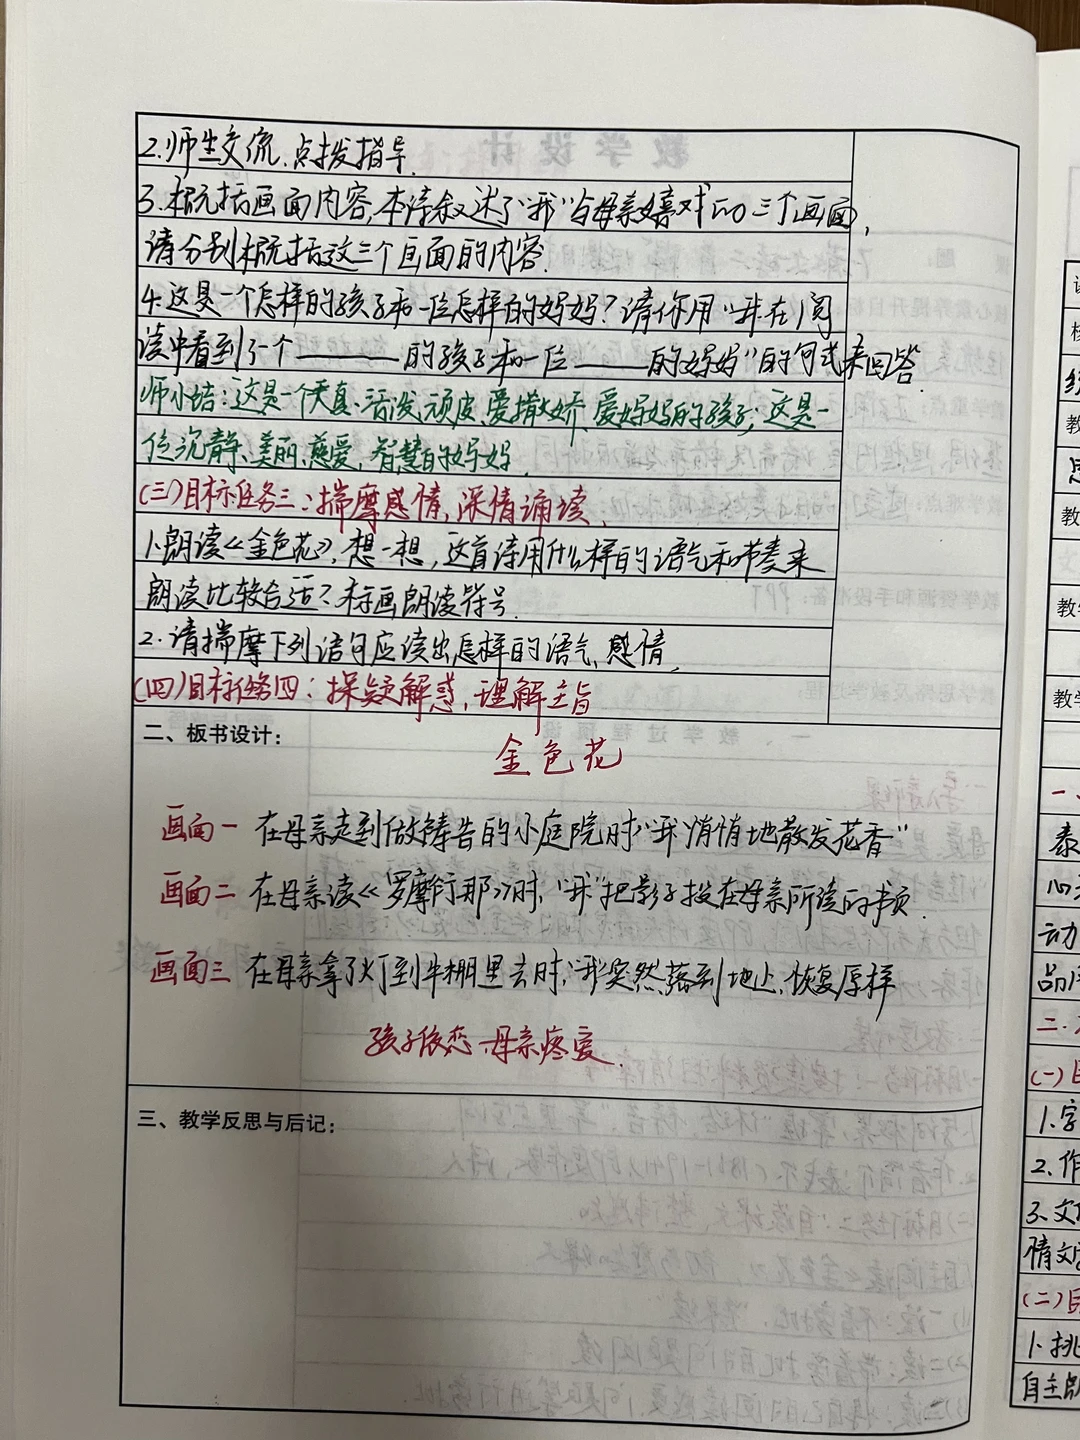 2.师生交流、点拨指导.
3.概括画面内容,本诗叙述了“我”与母亲嬉戏的三个画面,
请分别概括这三个画面的内容.
4.这是一个怎样的孩子和一位怎样的妈妈?请你用“我在阅
读中看到了一个______的孩子和一位______的妈妈”的句式来回答.
师小结:这是一个天真、活泼、顽皮、爱撒娇、爱妈妈的孩子;这是一
位沉静、美丽、慈爱、智慧的妈妈.
(三)目标任务三:揣摩感情,深情诵读.
1.朗读《金色花》,想一想,这首诗用什么样的语气和节奏来
朗读比较合适?标画朗读符号.
2.请揣摩下列语句应读出怎样的语气、感情.
(四)目标任务四:探疑解惑,理解主旨
二、板书设计:
金色花
画面一 在母亲走到做祷告的小庭院时,“我”悄悄地散发花香”
画面二 在母亲读《罗摩衍那》时,“我”把影子投在母亲所读的书页.
画面三 在母亲拿了灯到牛棚里去时,“我”突然落到地上,恢复原样
孩子依恋 母亲疼爱.
三、教学反思与后记:
教
思
教
教
教学
一、
泰
心
动
品
二.
(一)目
1.字
2.作
3.文
情文
(二)目
1.挑
自主朗